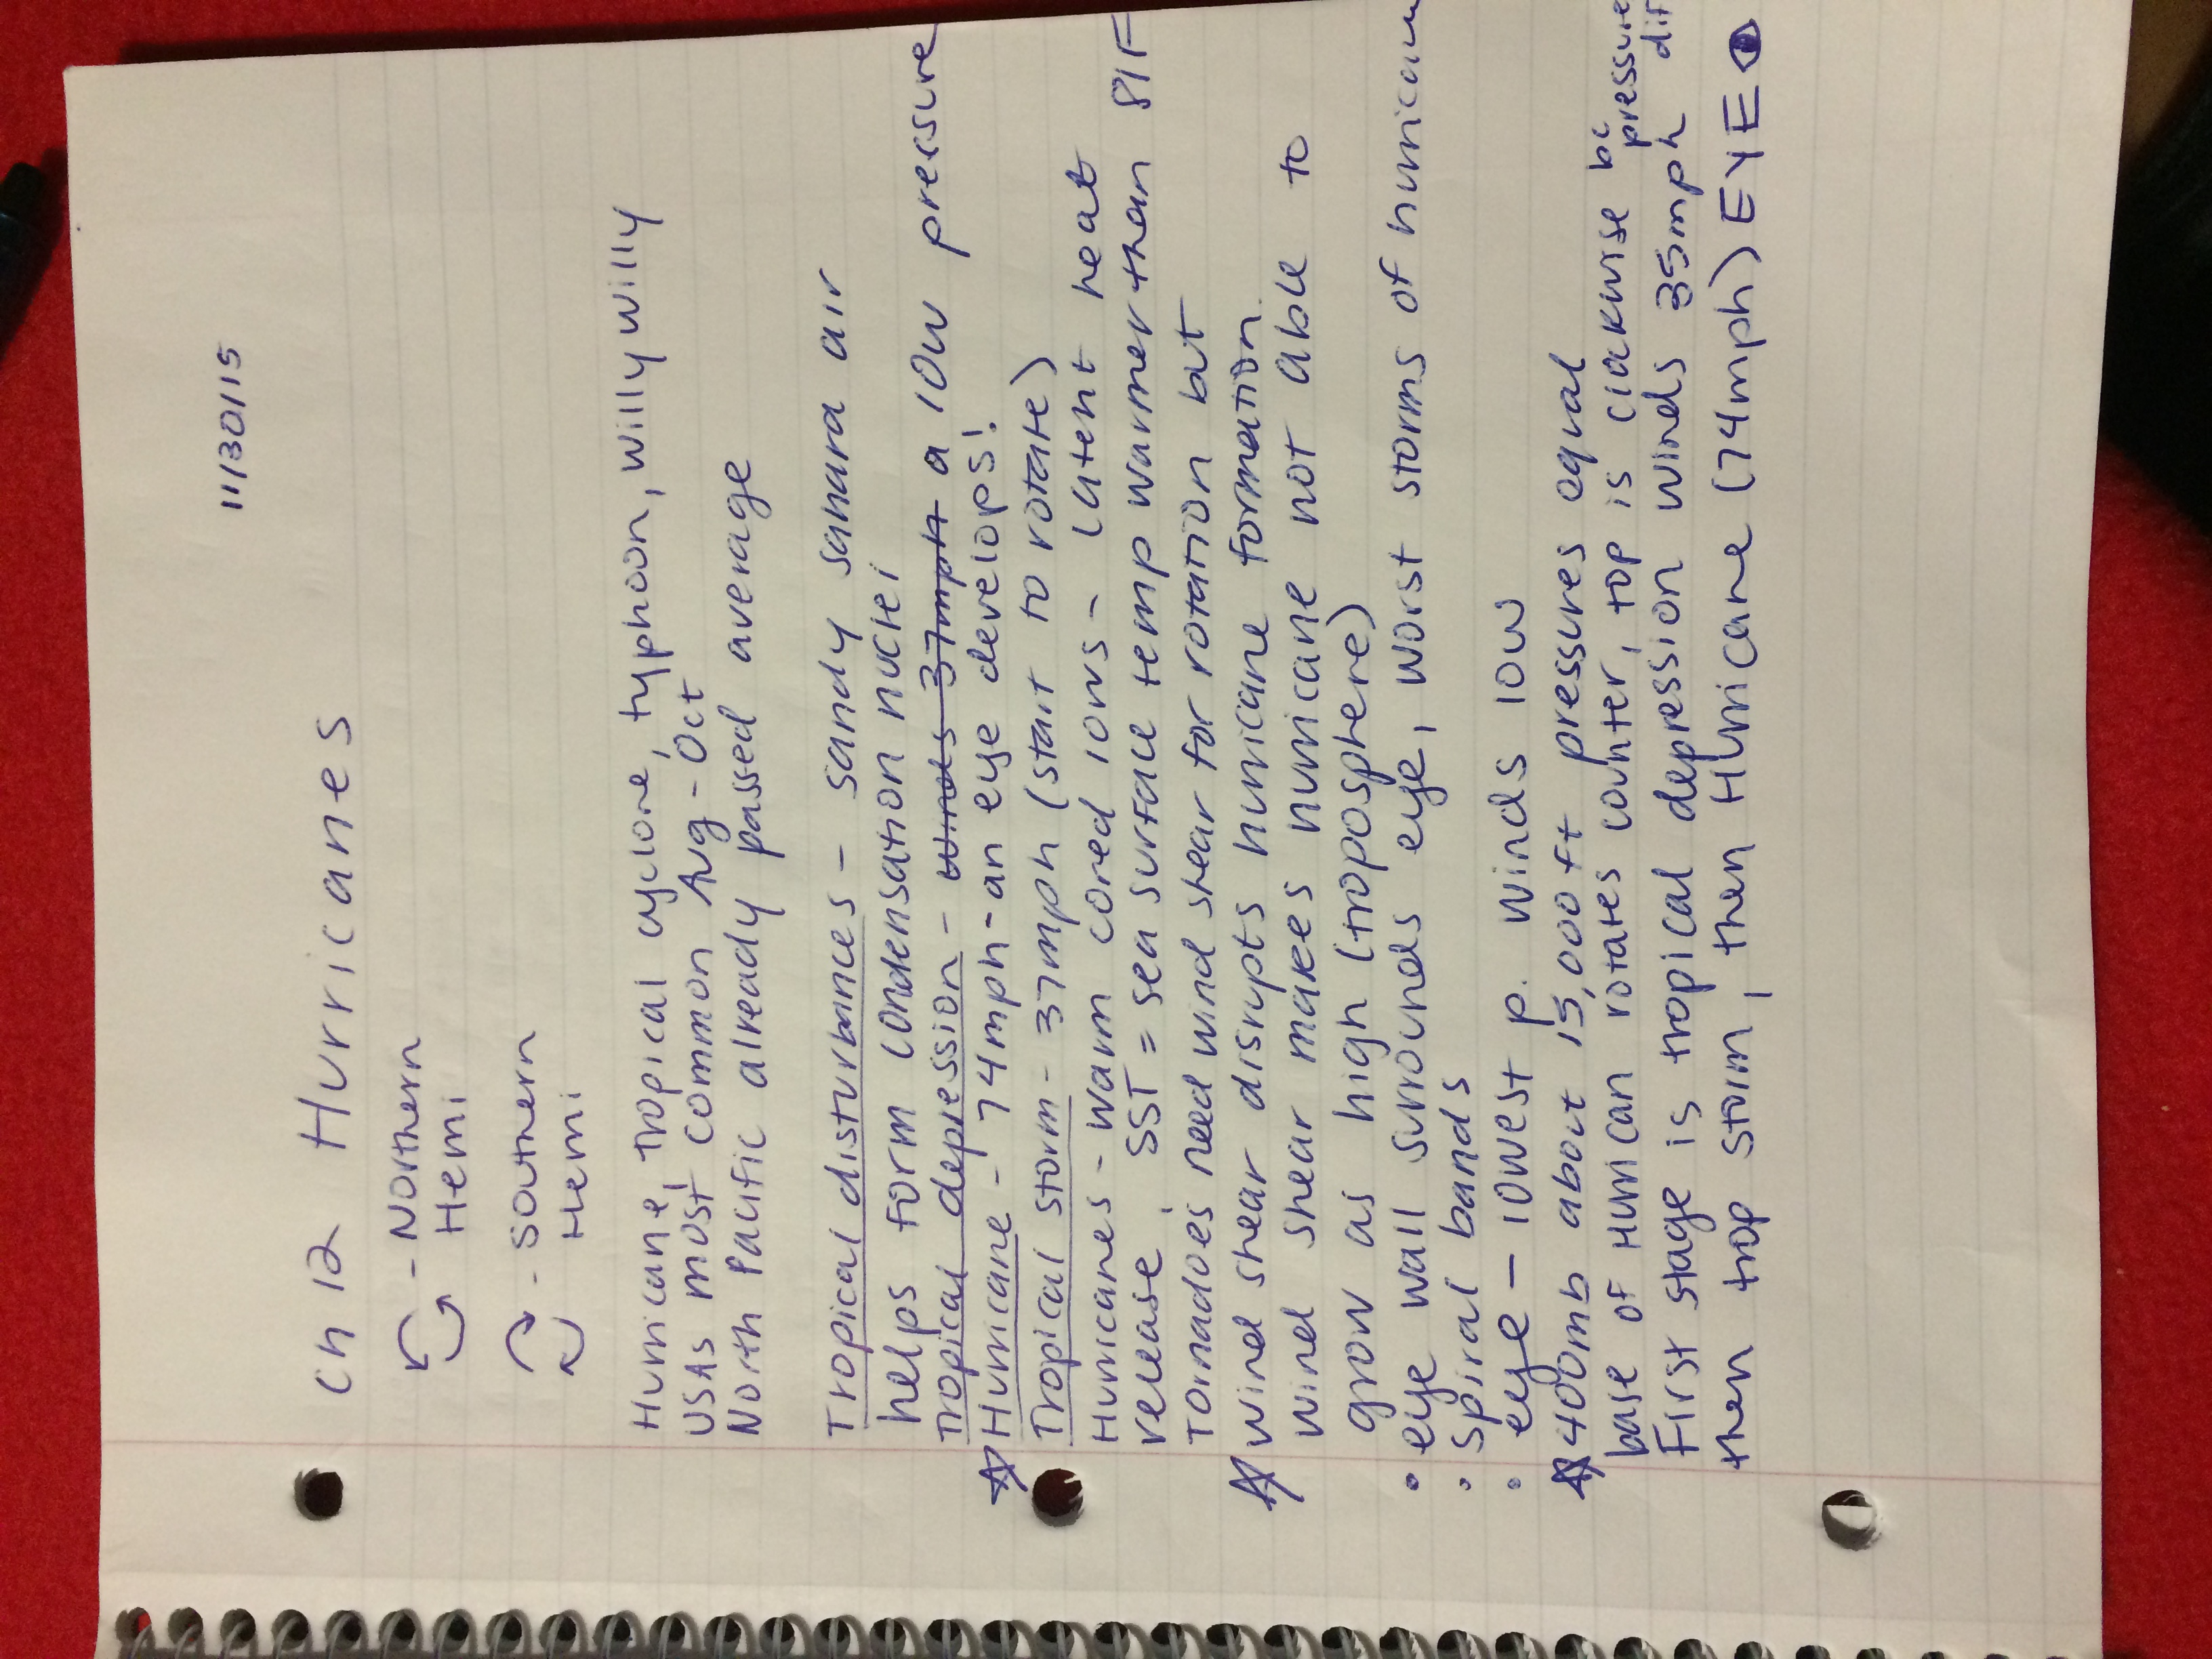 11/30/15
Ch 12 Hurricanes
- Northern
Hemi
- Southern
Hemi
Hurricane, tropical cyclone, typhoon, willy willy
USAs most common Aug - Oct
North Pacific already passed average
Tropical disturbances - sandy sahara air
helps form condensation nuclei
Tropical depression - winds 37mph a low pressure
Hurricane - 74mph - an eye develops!
Tropical storm - 37mph (start to rotate)
Hurricanes - warm cored lows - latent heat
release. SST = sea surface temp warmer than 81F
Tornadoes need wind shear for rotation but
wind shear disrupts hurricane formation.
wind shear makes hurricane not able to
grow as high (troposphere)
• eye wall surrounds eye, worst storms of hurrican
• spiral bands
• eye - lowest p. winds low
400mb about 15,000ft pressures equal
base of Hurrican rotates counter, top is clockwise bc pressure
First stage is tropical depression winds 35mph dif
then trop storm, then Hurricane (74mph) EYE